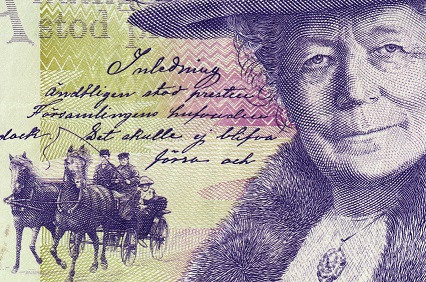 stod p
Inledning
ändtligen stod presten
Församlingens hufvuden
dock. Det skulle ej blifva
och